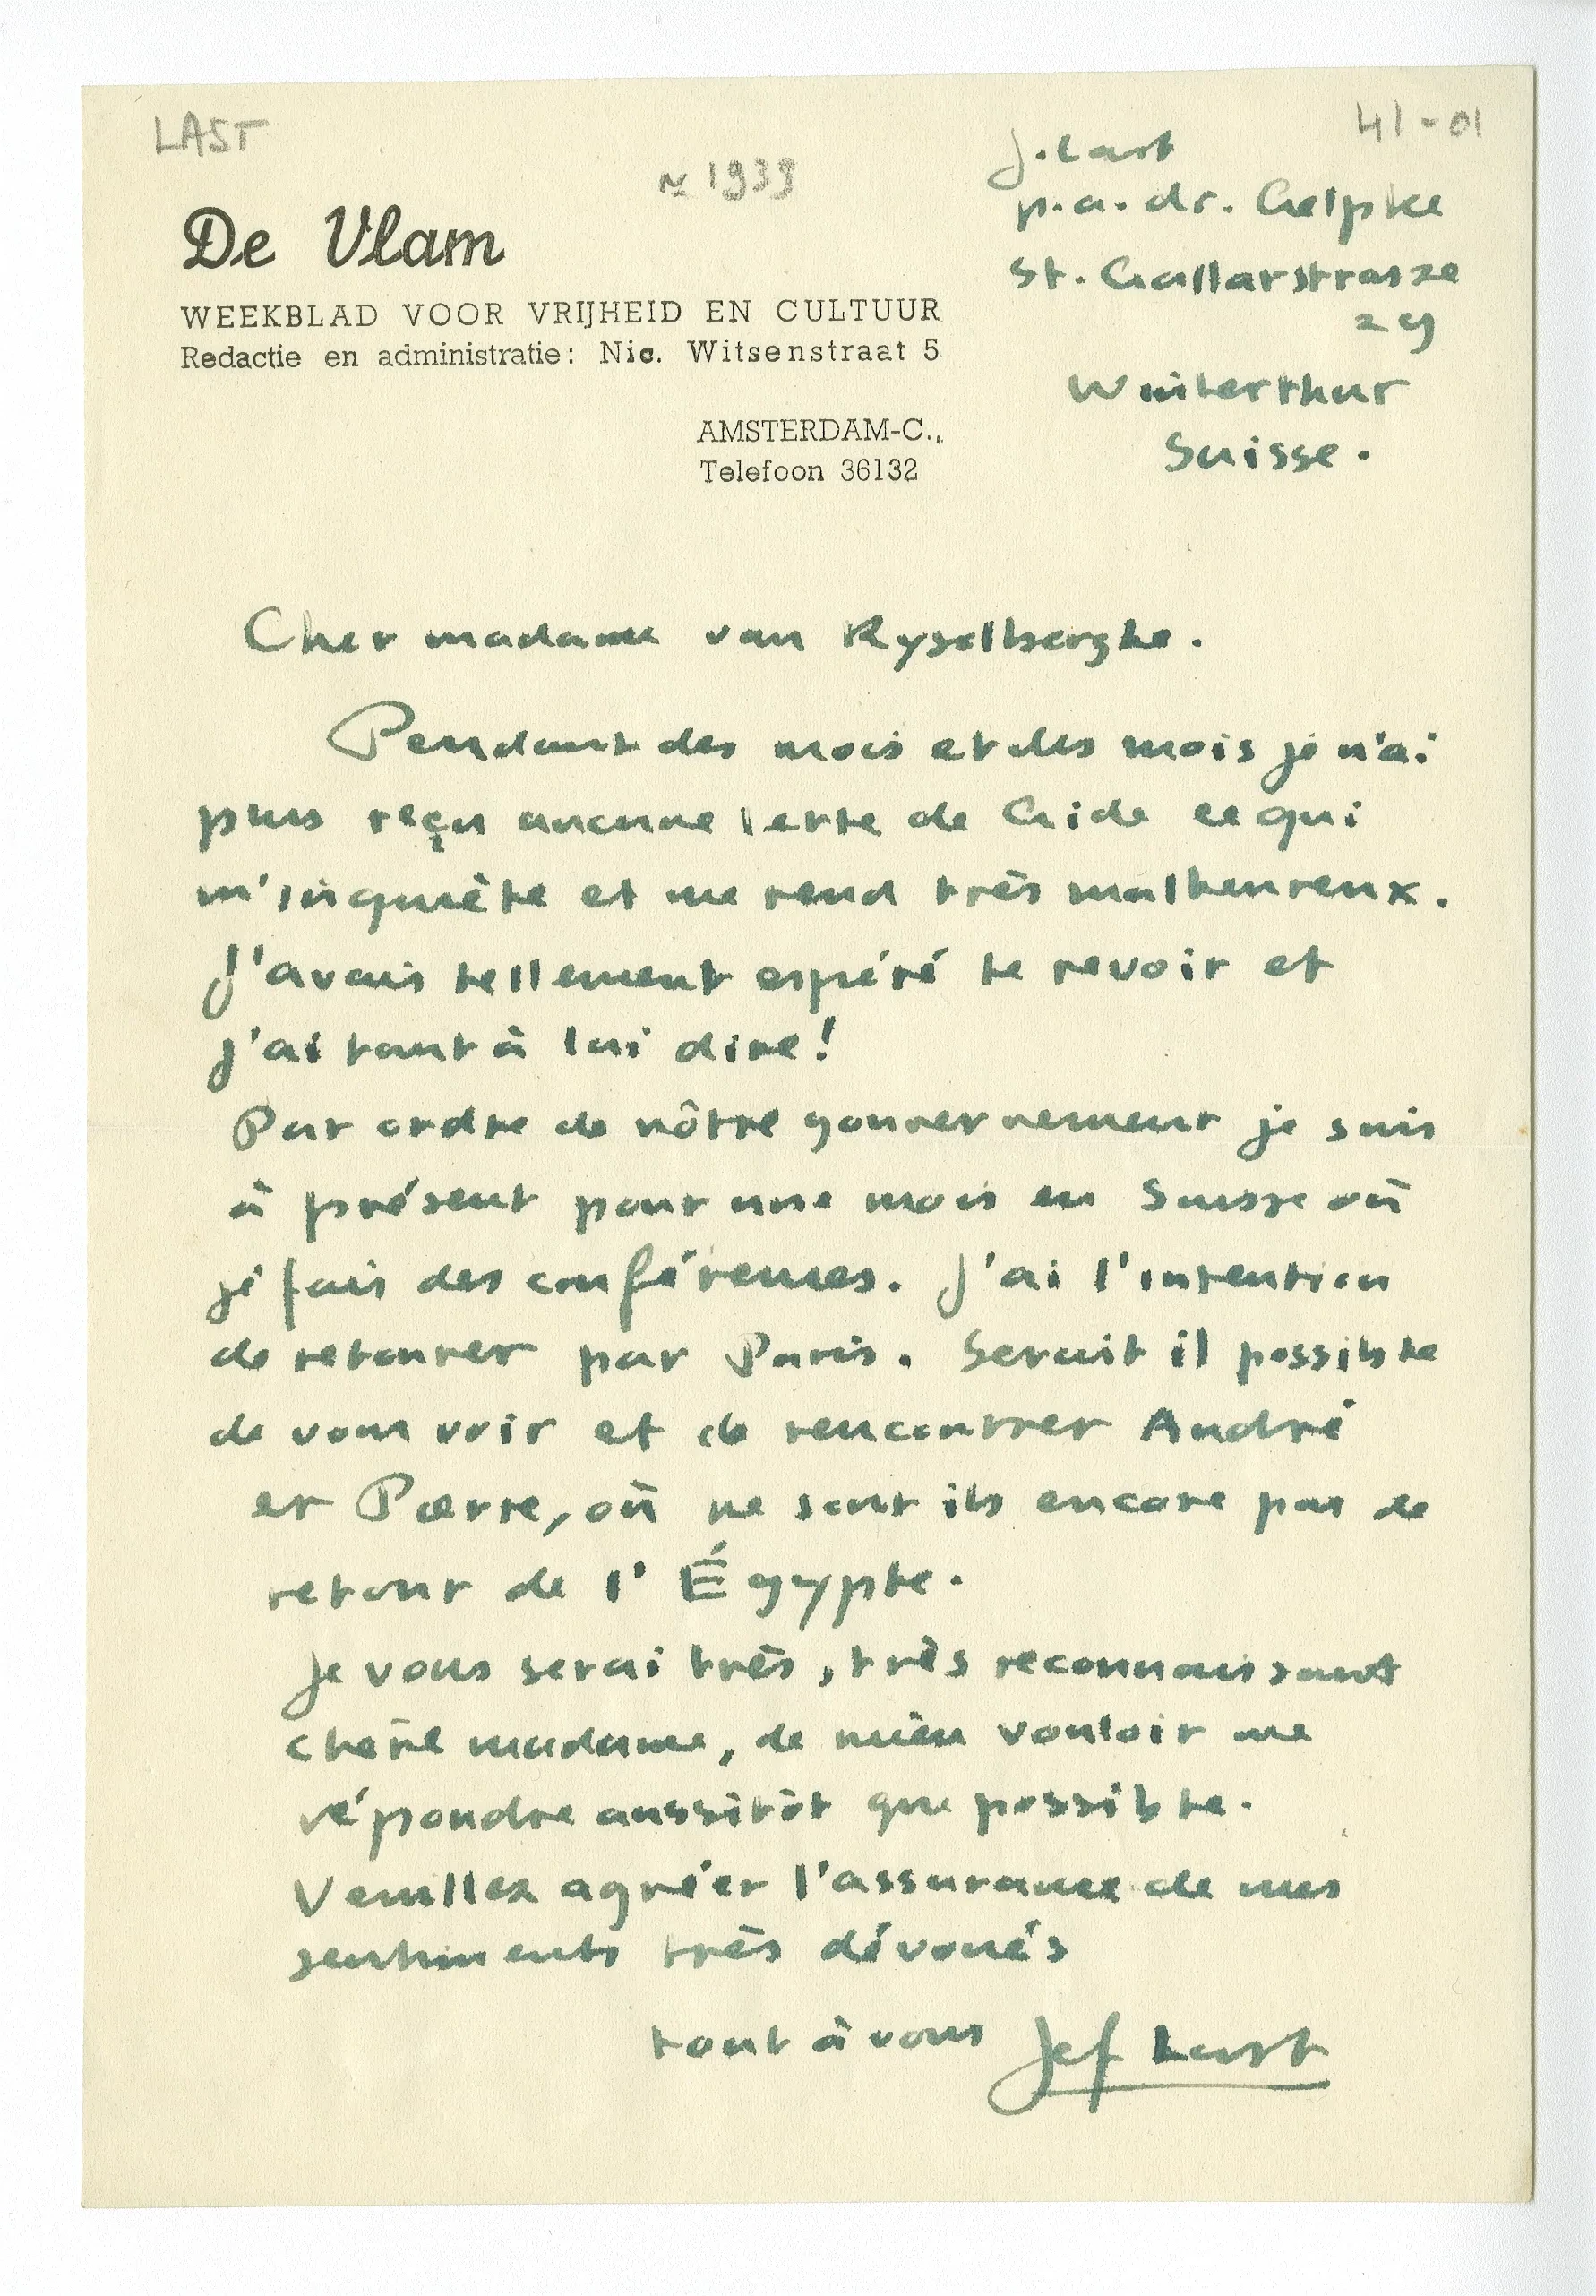 LAST
41-01
~ 1939
De Vlam
WEEKBLAD VOOR VRIJHEID EN CULTUUR
Redactie en administratie: Nic. Witsenstraat 5
AMSTERDAM-C.,
Telefoon 36132
J. Last
p.a. dr. Gelpke
St. Gallarstrasze
29
Winterthur
Suisse.
Cher madame van Rysselberghe.
Pendant des mois et des mois je n'ai
plus reçu aucune lettre de Gide ce qui
m'inquiète et me rend très malheureux.
J'avais tellement espéré le revoir et
j'ai tant à lui dire!
Par ordre de nôtre gouvernement je suis
à présent pour une mois en Suisse où
je fais des conférences. J'ai l'intention
de retourer par Paris. Serait il possible
de vous voir et de rencontrer André
et Pierre, où ne sont ils encore pas de
retour de l'Égypte.
Je vous serai très, très reconnaissant
chère madame, de vouloir me
répondre aussitôt que possible.
Veuillez agréer l'assurance de mes
sentiments très dévoués
tout à vous Jef Last